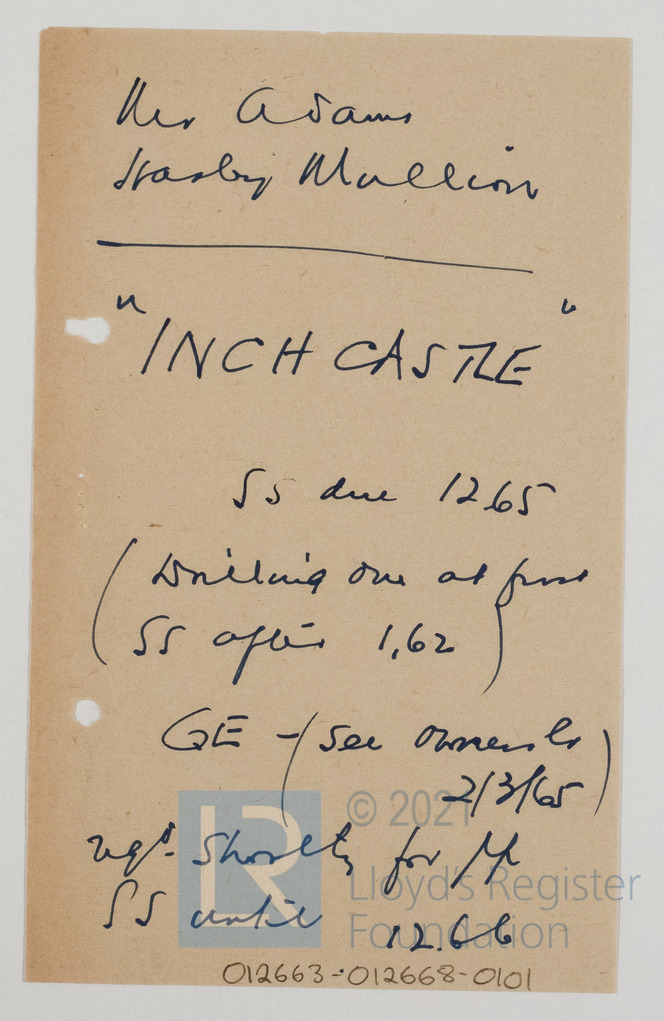 Mr Adams
Mullion
"INCHCASTLE"
SS due 12.65
(Drilling due at first
SS after 1,62)
GE - (see owners ls
2/3/65)
reqd. shortly for pp
SS until 12.66
012663-012668-0101
© 2021
LR
Lloyd's Register
Foundation